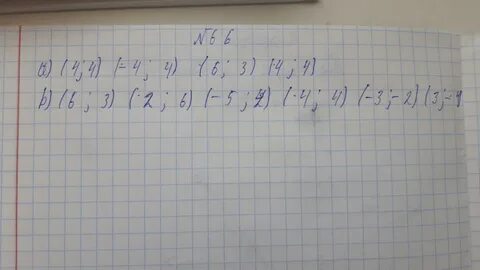 №66
а) (4;4) (-4; 4) (6; 3) (4; 4)
b) (6; 3) (-2; 6) (-5; 2) (-4; 4) (-3;-2) (3;-4